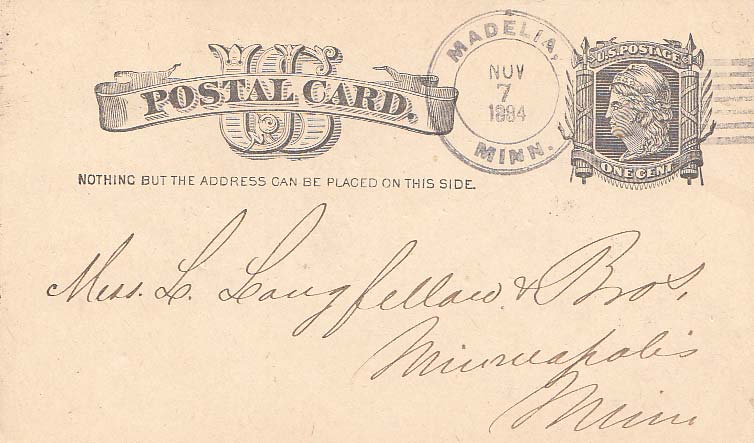 US
POSTAL CARD.
NOTHING BUT THE ADDRESS CAN BE PLACED ON THIS SIDE.
MADELIA,
NOV
7
1884
MINN.
U.S. POSTAGE
ONE CENT
Mess. L. Longfellow & Bros,
Minneapolis
Minn